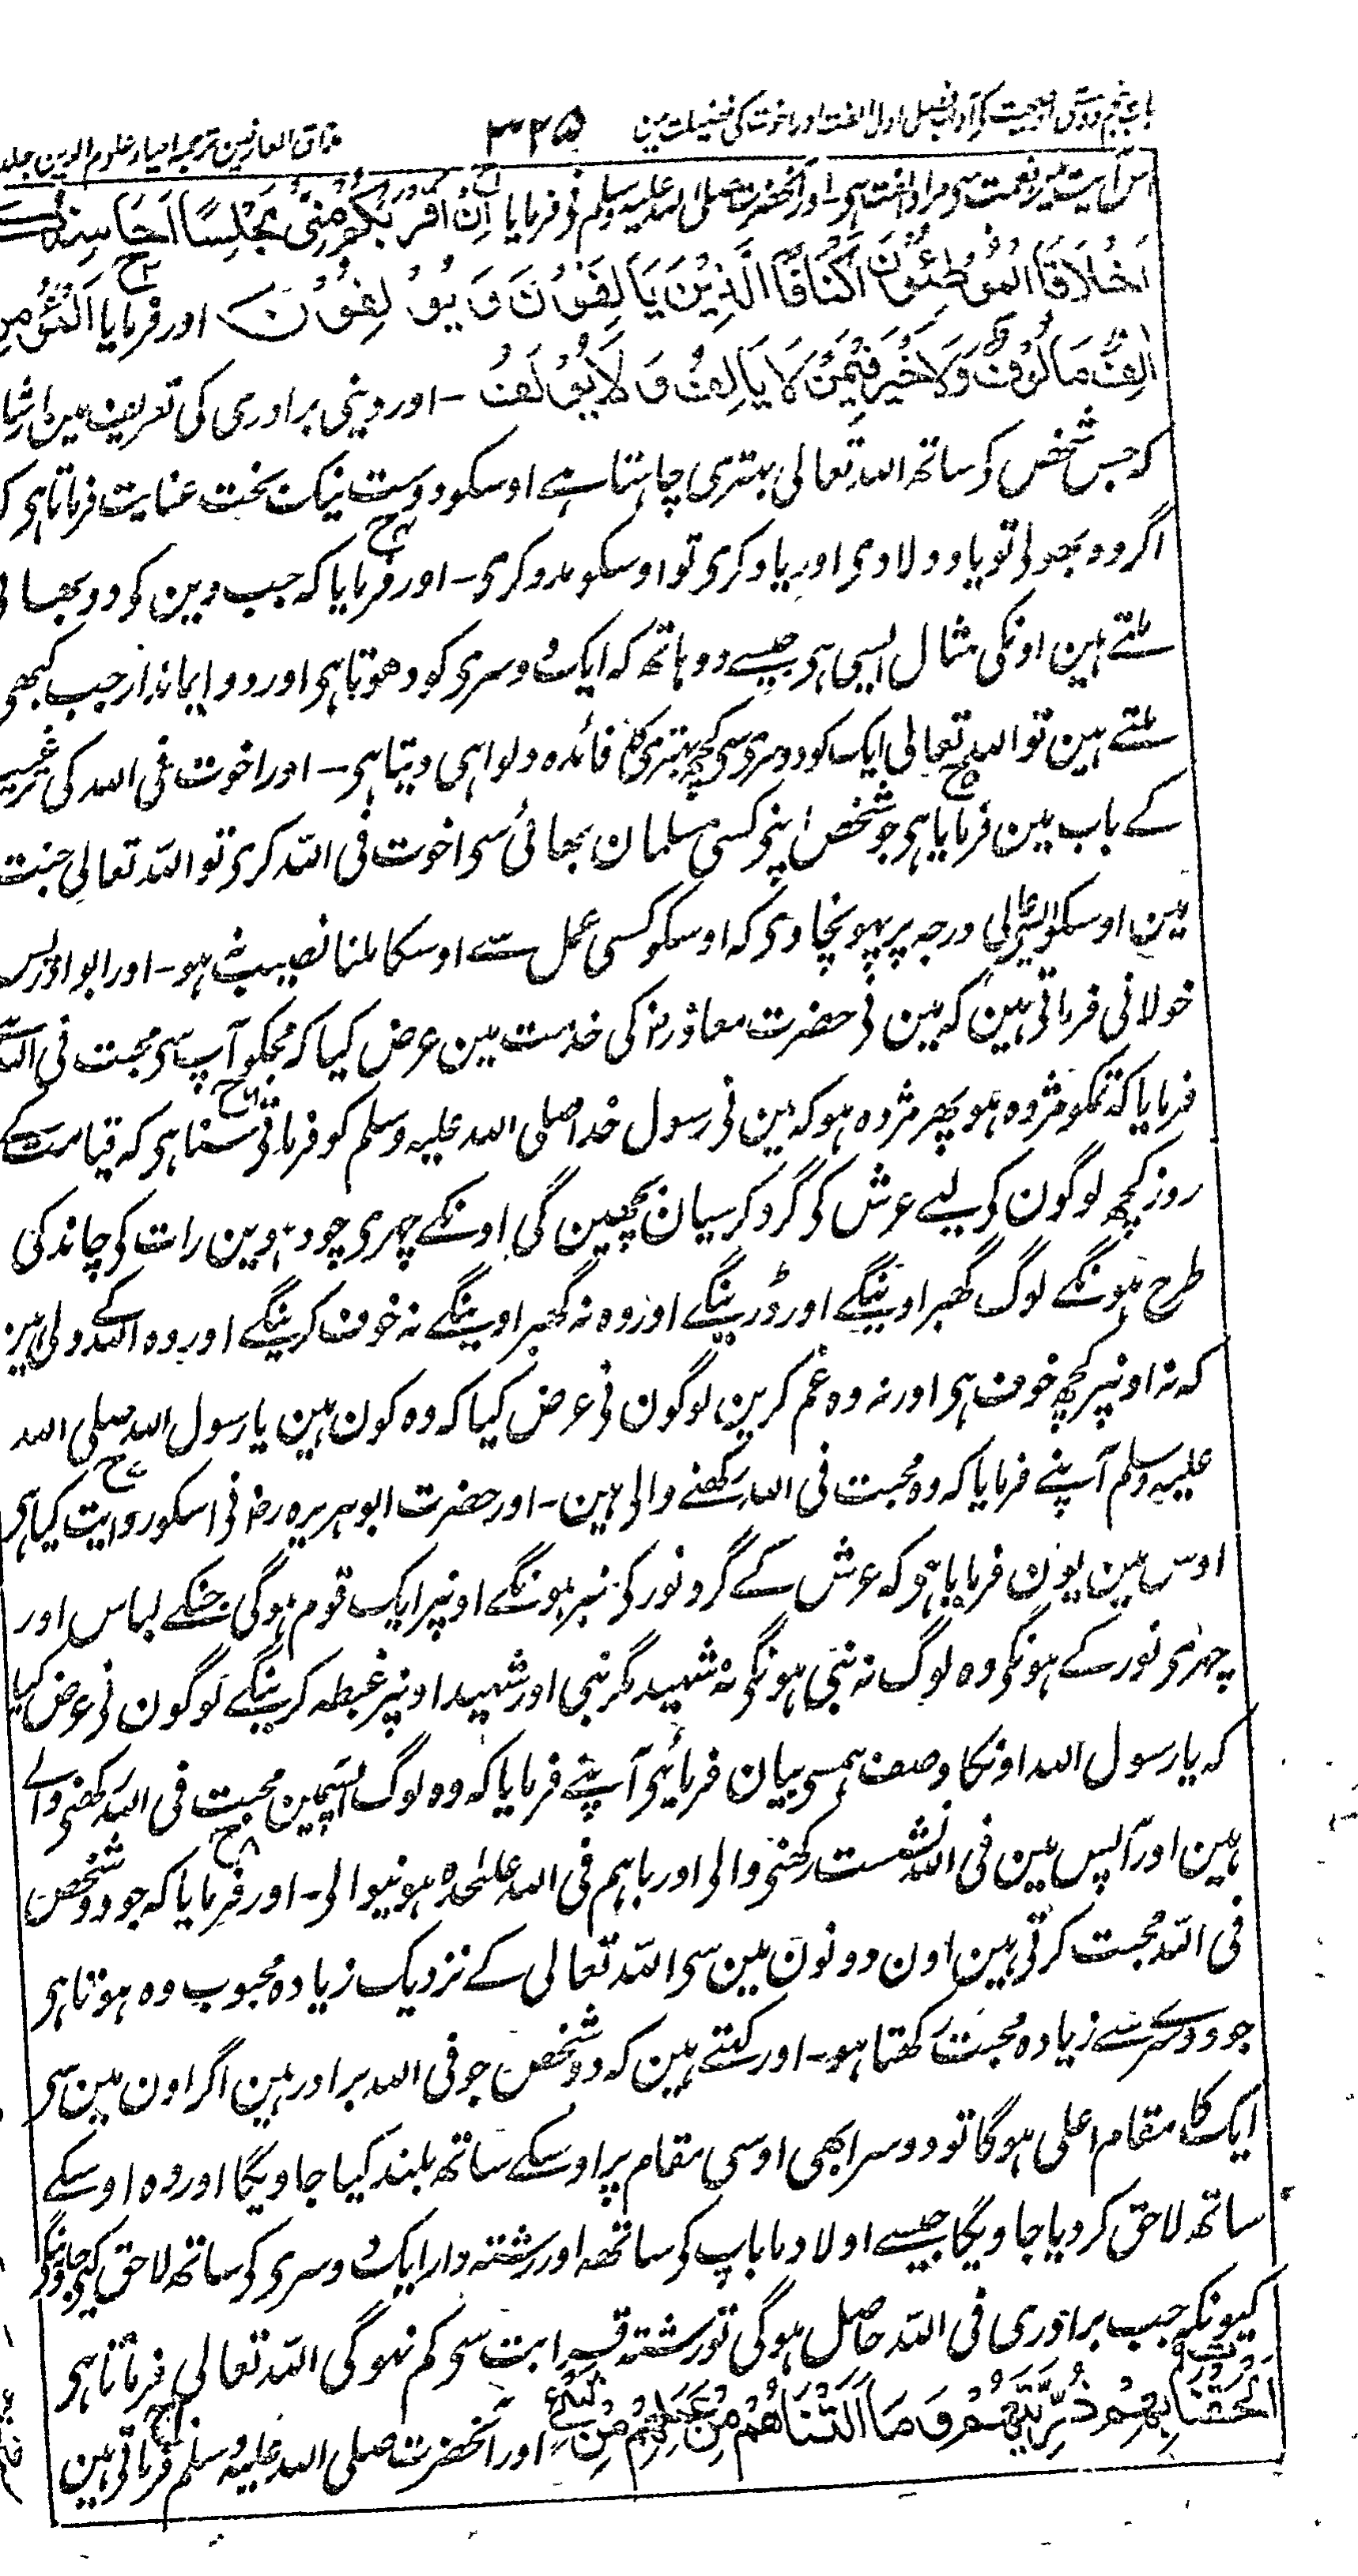 باب پنجم دوستی اور صحبت کے آداب فصل اول الفت اور اخوت کی فضیلت مین ۳۲۵ مذاق العارفین ترجمہ احیاء علوم الدین جلد
اس آیت مین نعمت سی مراد الفت ہی۔ اور آنحضرت صلی اللہ علیہ وسلم نی فرمایا اِنَّ اَقْرَبَکُمْ مِنِّیْ مَجْلِسًا اَحَاسِنُکُمْ
اَخْلَاقًا اَلْمُوَطَّئُوْنَ اَکْنَافًا الَّذِیْنَ یَاْلِفُوْنَ وَ یُوْلَفُوْنَ اور فرمایا اَلْمُؤْمِنُ
اٰلِفٌ مَالُوْفٌ وَلَا خَیْرَ فِیْمَنْ لَا یَاْلِفُ وَ لَا یُوْلَفُ ۔ اور دینی برادری کی تعریف مین ارشا
کہ جس شخص کی ساتھ اللہ تعالی بہتری چاہتا ہے اوسکو دوست نیک بخت عنایت فرماتا ہی کہ
اگر وہ بھولی تو یاد دلادی اور یاد کری تو اوسکو مدد کری ۔ اور فرمایا کہ جب دین کی دو بھائی
ملتے ہین اونکی مثال ایسی ہی جیسے دو ہاتھ کہ ایک دوسری کو دھوتا ہی اور دو ایماندار جب کبھی
ملتے ہین تو اللہ تعالی ایک کو دوسری سی کچھ بہتری کا فائدہ دلوا ہی دیتا ہی ۔ اور اخوت فی اللہ کی ترغیب
کے باب مین فرمایا ہی جو شخص اپنی کسی مسلمان بھائی سی اخوت فی اللہ کری تو اللہ تعالی جنت
مین اوسکو ایسی عالی درجہ پر پہونچا دی کہ اوسکو کسی عمل سے اوسکا ملنا نصیب نہو ۔ اور ابو ادریس
خولانی فرماتی ہین کہ مین نی حضرت معاذ رض کی خدمت مین عرض کیا کہ مجکو آپ سی محبت فی اللہ
فرمایا کہ تمکو مژدہ ہو پھر مژدہ ہو کہ مین نی رسول خدا صلی اللہ علیہ وسلم کو فرماتی سنا ہی کہ قیامت کے
روز کچھ لوگون کی لیے عرش کی گرد کرسیان بچھین گی اونکے چہری چودہوین رات کی چاند کی
طرح ہونگے لوگ گھبراوینگے اور ڈرینگے اور وہ نہ گھبراوینگے نہ خوف کرینگے اور وہ اللہ کے ولی ہین
کہ نہ اونپر کچھ خوف ہی اور نہ وہ غم کرین لوگون نی عرض کیا کہ وہ کون ہین یا رسول اللہ صلی اللہ
علیہ وسلم آپنے فرمایا کہ وہ محبت فی اللہ رکھنے والی ہین ۔ اور حضرت ابو ہریرہ رض نی اسکو روایت کیا ہی
اوس مین یون فرمایا ہی کہ عرش کے گرد نور کی منبر ہونگے اونپر ایک قوم ہوگی جنکے لباس اور
چہری نور کے ہونگی وہ لوگ نہ نبی ہونگی نہ شہید مگر نبی اور شہید اونپر غبطہ کرینگے لوگون نی عرض کیا
کہ یا رسول اللہ اونکا وصف ہمسی بیان فرمائی آپنے فرمایا کہ وہ لوگ آپسمین محبت فی اللہ رکھنی والے
ہین اور آپس مین فی اللہ نشست رکھنی والی اور باہم فی اللہ علٰحدہ ہونیوالی ۔ اور فرمایا کہ جو دو شخص
فی اللہ محبت کرتی ہین اون دونون مین سی اللہ تعالی کے نزدیک زیادہ محبوب وہ ہوتا ہی
جو دوسرے سے زیادہ محبت رکھتا ہو ۔ اور کہتے ہین کہ دو شخص جو فی اللہ برادر ہین اگر اون مین سی
ایک کا مقام اعلی ہوگا تو دوسرا بھی اوسی مقام پر اوسکے ساتھ بلند کیا جاویگا اور وہ اوسکے
ساتھ لاحق کر دیا جاویگا جیسے اولاد ماباپ کی ساتھ اور رشتہ دار ایک دوسری کی ساتھ لاحق کیی جاوینگے
کیونکہ جب برادری فی اللہ حاصل ہوگی تو رشتہ قرابت سی کم نہوگی اللہ تعالی فرماتا ہی
اَلْحَقْنَا بِھِمْ ذُرِّیَّتَھُمْ وَ مَا اَلَتْنَاھُمْ مِنْ عَمَلِھِمْ مِنْ شَیْءٍ اور آنحضرت صلی اللہ علیہ وسلم فرماتی ہین